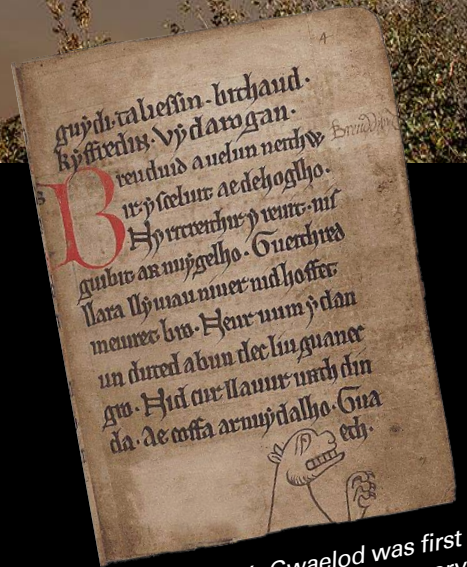 4
guydi. taliessin. bithaud.
kyffredin. vy darogan.
Breuduid a uelun neithw
ir. ys celuit ae dehoglho.
Ny ritreithir y reuit. nis
guibit ar nuygelho. Gueithred
llara llyuiau niuer nid hoffet
meiuret bro. Neur uum y dan
un duted a bun dec liu guanec
gro. Nid cur llauur urth din
da. Ae coffa arnuy dalho. Gua
eth.
Gwaelod was first